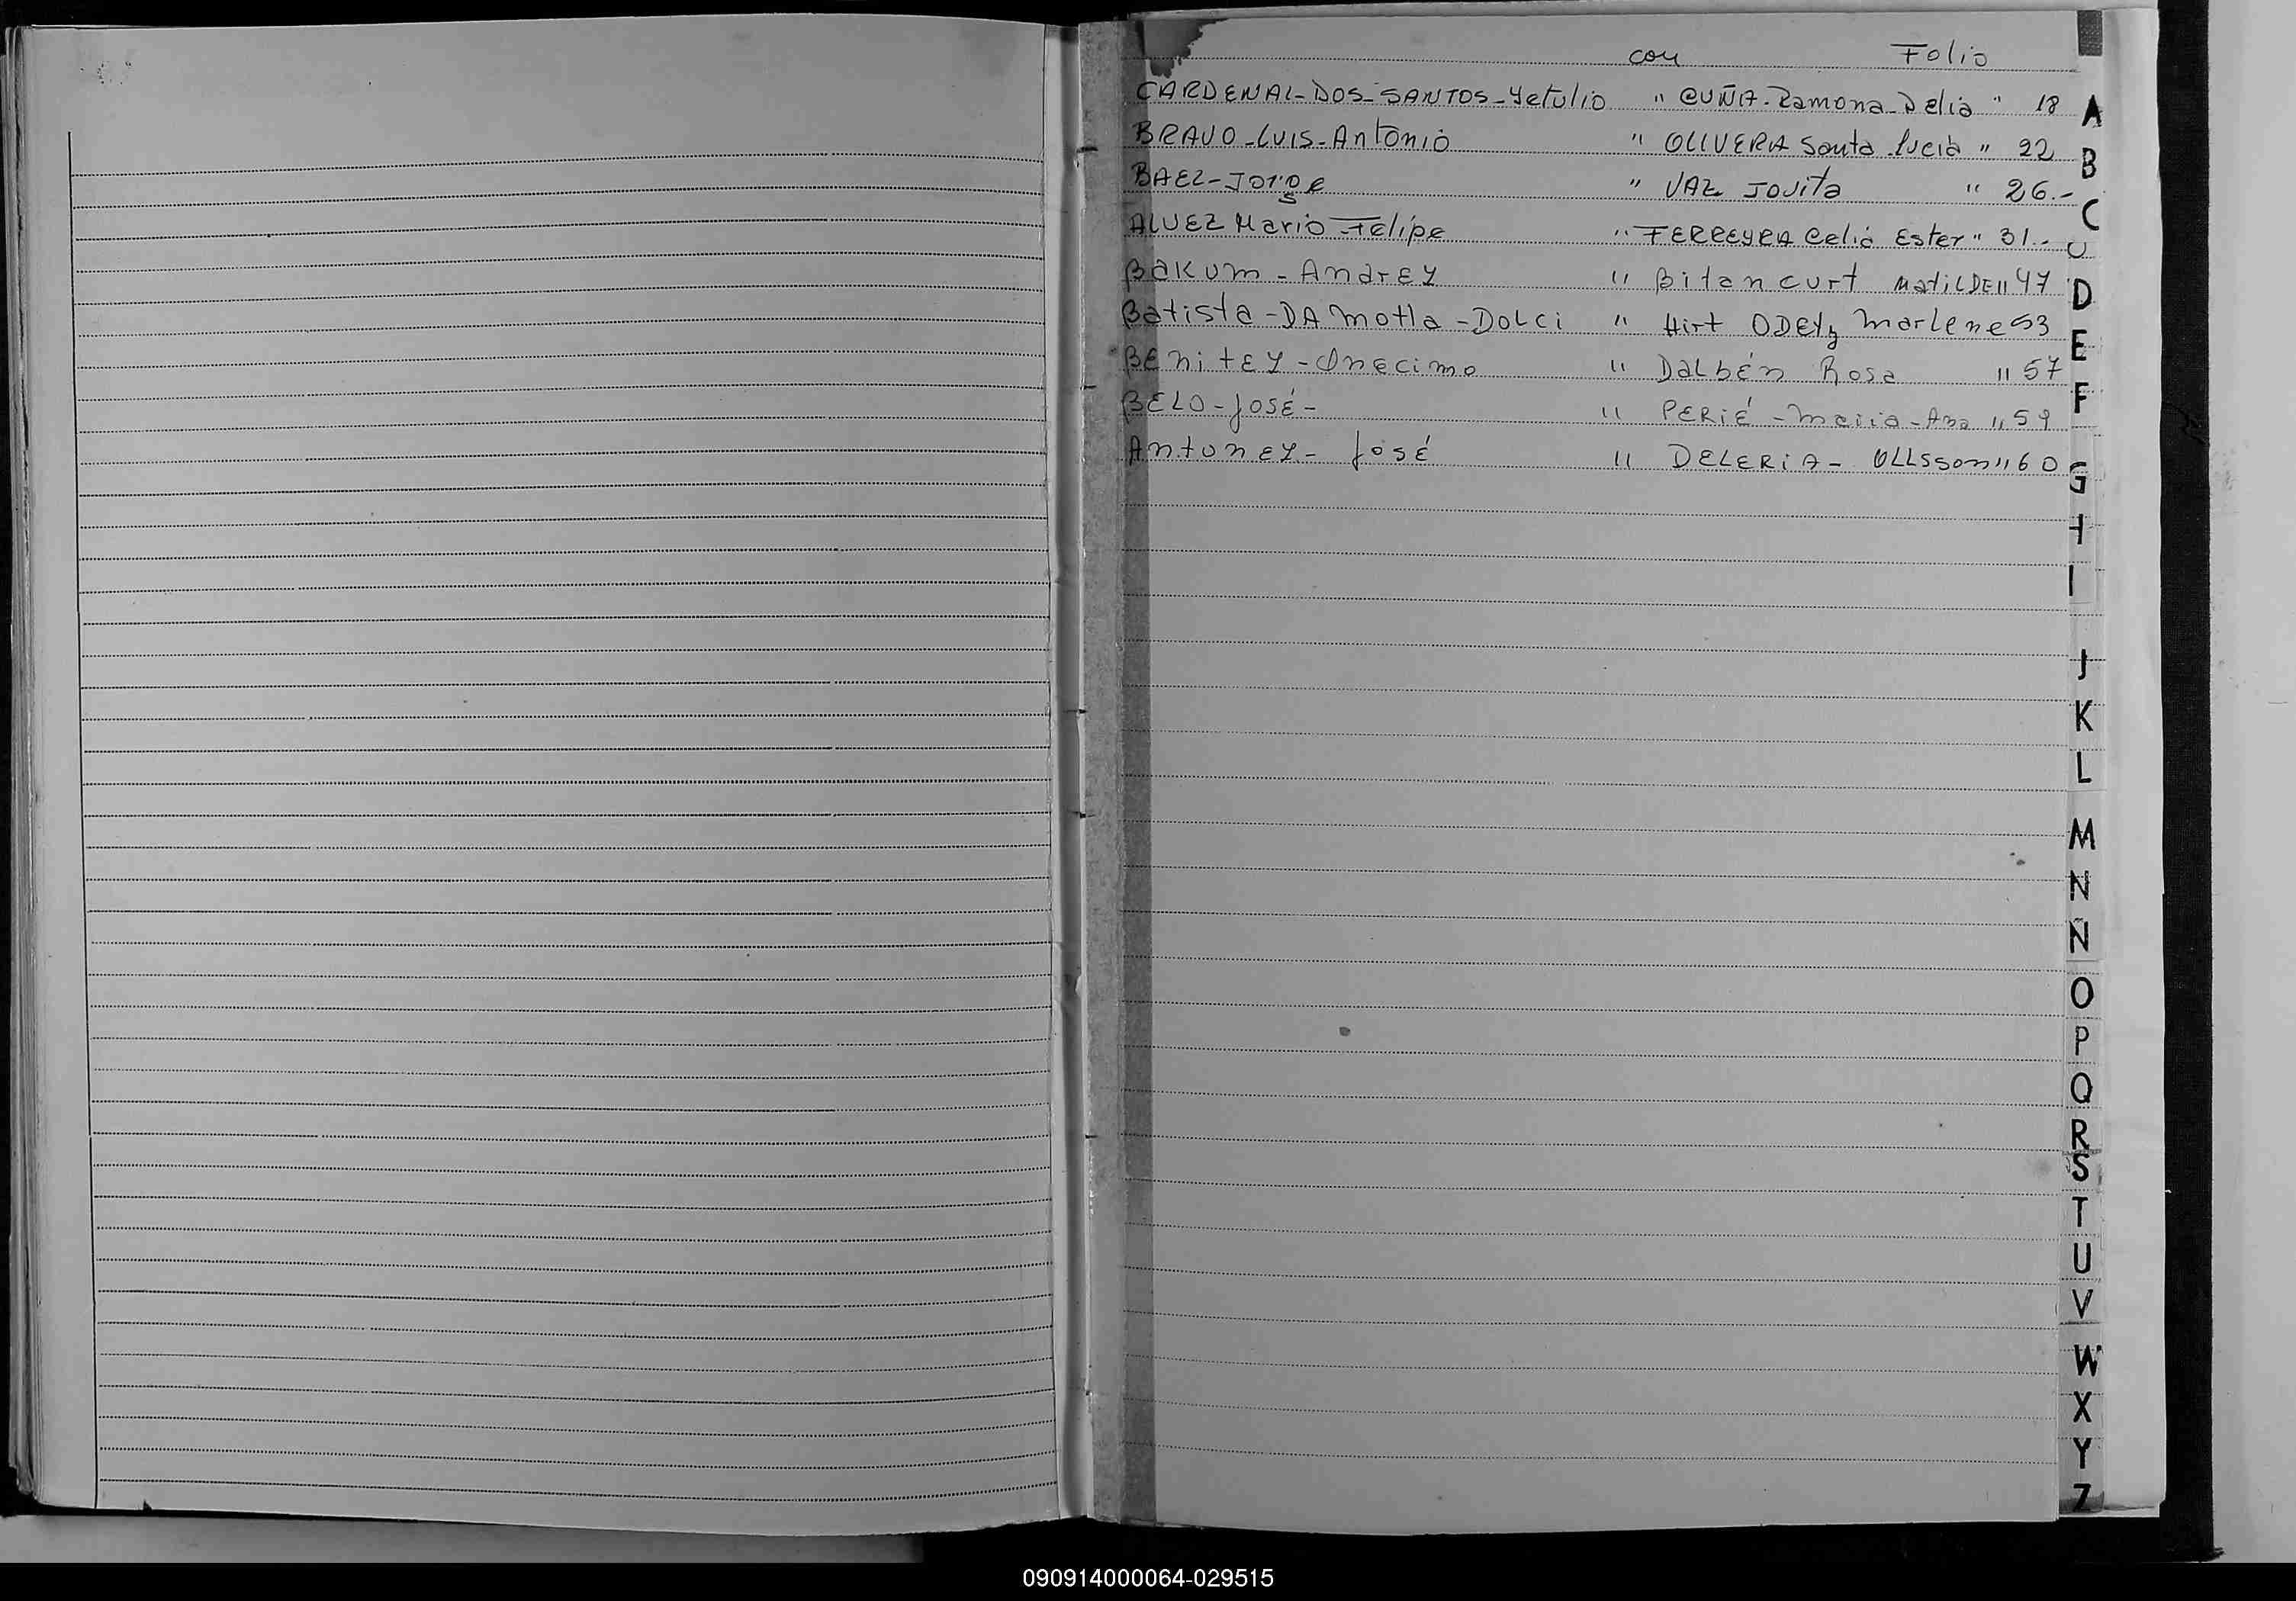 con Folio
CARDENAL-DOS-SANTOS-Yetulio " CUÑA-Ramona-Delia " 18
BRAVO-LUIS-Antonio " OLIVERA Santa Lucia " 22
BAEZ-Jorge " VAZ JOVita " 26.-
ALVEZ Mario Felipe " FERREYRA Celia Ester " 31.-
Bakum - Andrez " Bitancurt MatiLDE " 47
Batista-DA Motta-Dolci " Hirt ODEty Marlene 53
BEnitez-Onecimo " DaLbén Rosa " 57
BELO-José- " PERIÉ-Maria-Ana " 59
Antonez- José " DELERIA- OLLsson " 60
A
B
C
D
E
F
G
H
I
J
K
L
M
N
Ñ
O
P
Q
R
S
T
U
V
W
X
Y
Z
090914000064-029515